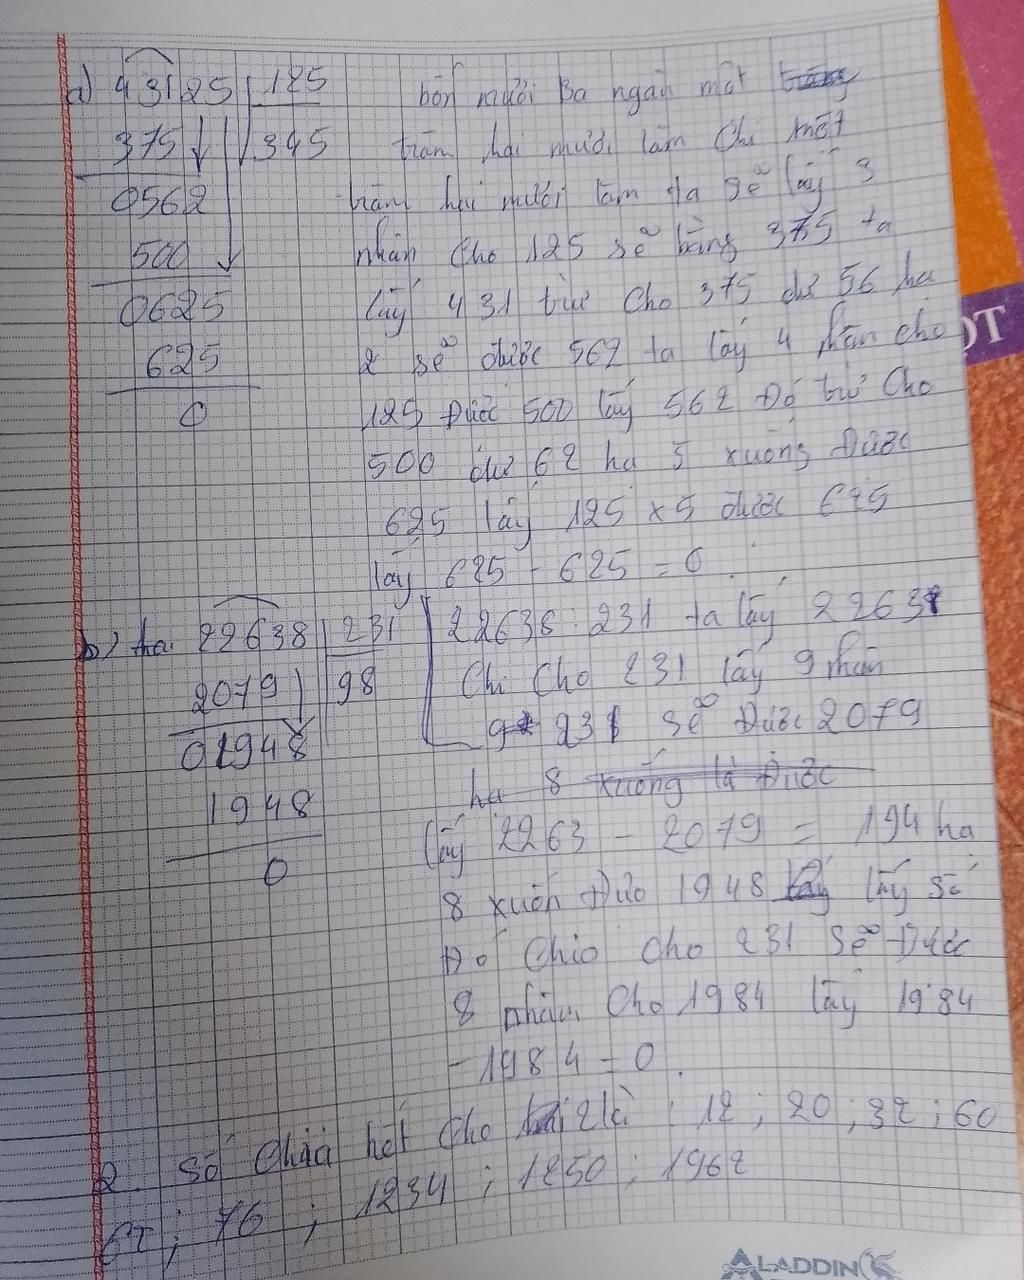 a) 43125 | 125 bốn mươi Ba ngàn một
375 345 trăm hai mươi lăm Chi một
0562 trăm hai mươi lăm ta sẽ lấy 3
500 nhân Cho 125 sẽ bằng 375 ta
0625 lấy 431 trừ Cho 375 dư 56 hạ
625 2 sẽ được 562 ta lấy 4 nhân cho
0 125 Được 500 lấy 562 Đó trừ Cho
500 dư 62 hạ 5 xuống Được
625 lấy 125 x 5 được 625
lấy 625 - 625 = 0
b) 22638 | 231 22638 : 231 ta lấy 2263
2079 98 Chi Cho 231 lấy 9 nhân
01948 9 231 Sẽ Được 2079
1948 hạ 8 xuống là Được
0 lấy 2263 - 2079 = 194 hạ
8 xuốn Đưo 1948 lấy số
Đó Chio Cho 231 Sẽ Được
8 nhân Cho 1984 lấy 1984
- 1984 = 0.
2. Số Chia hết Cho 2 là : 12 ; 20 ; 32 ; 60
62 ; 76 ; 1234 ; 1250 ; 1962
ALADDIN
ỘT